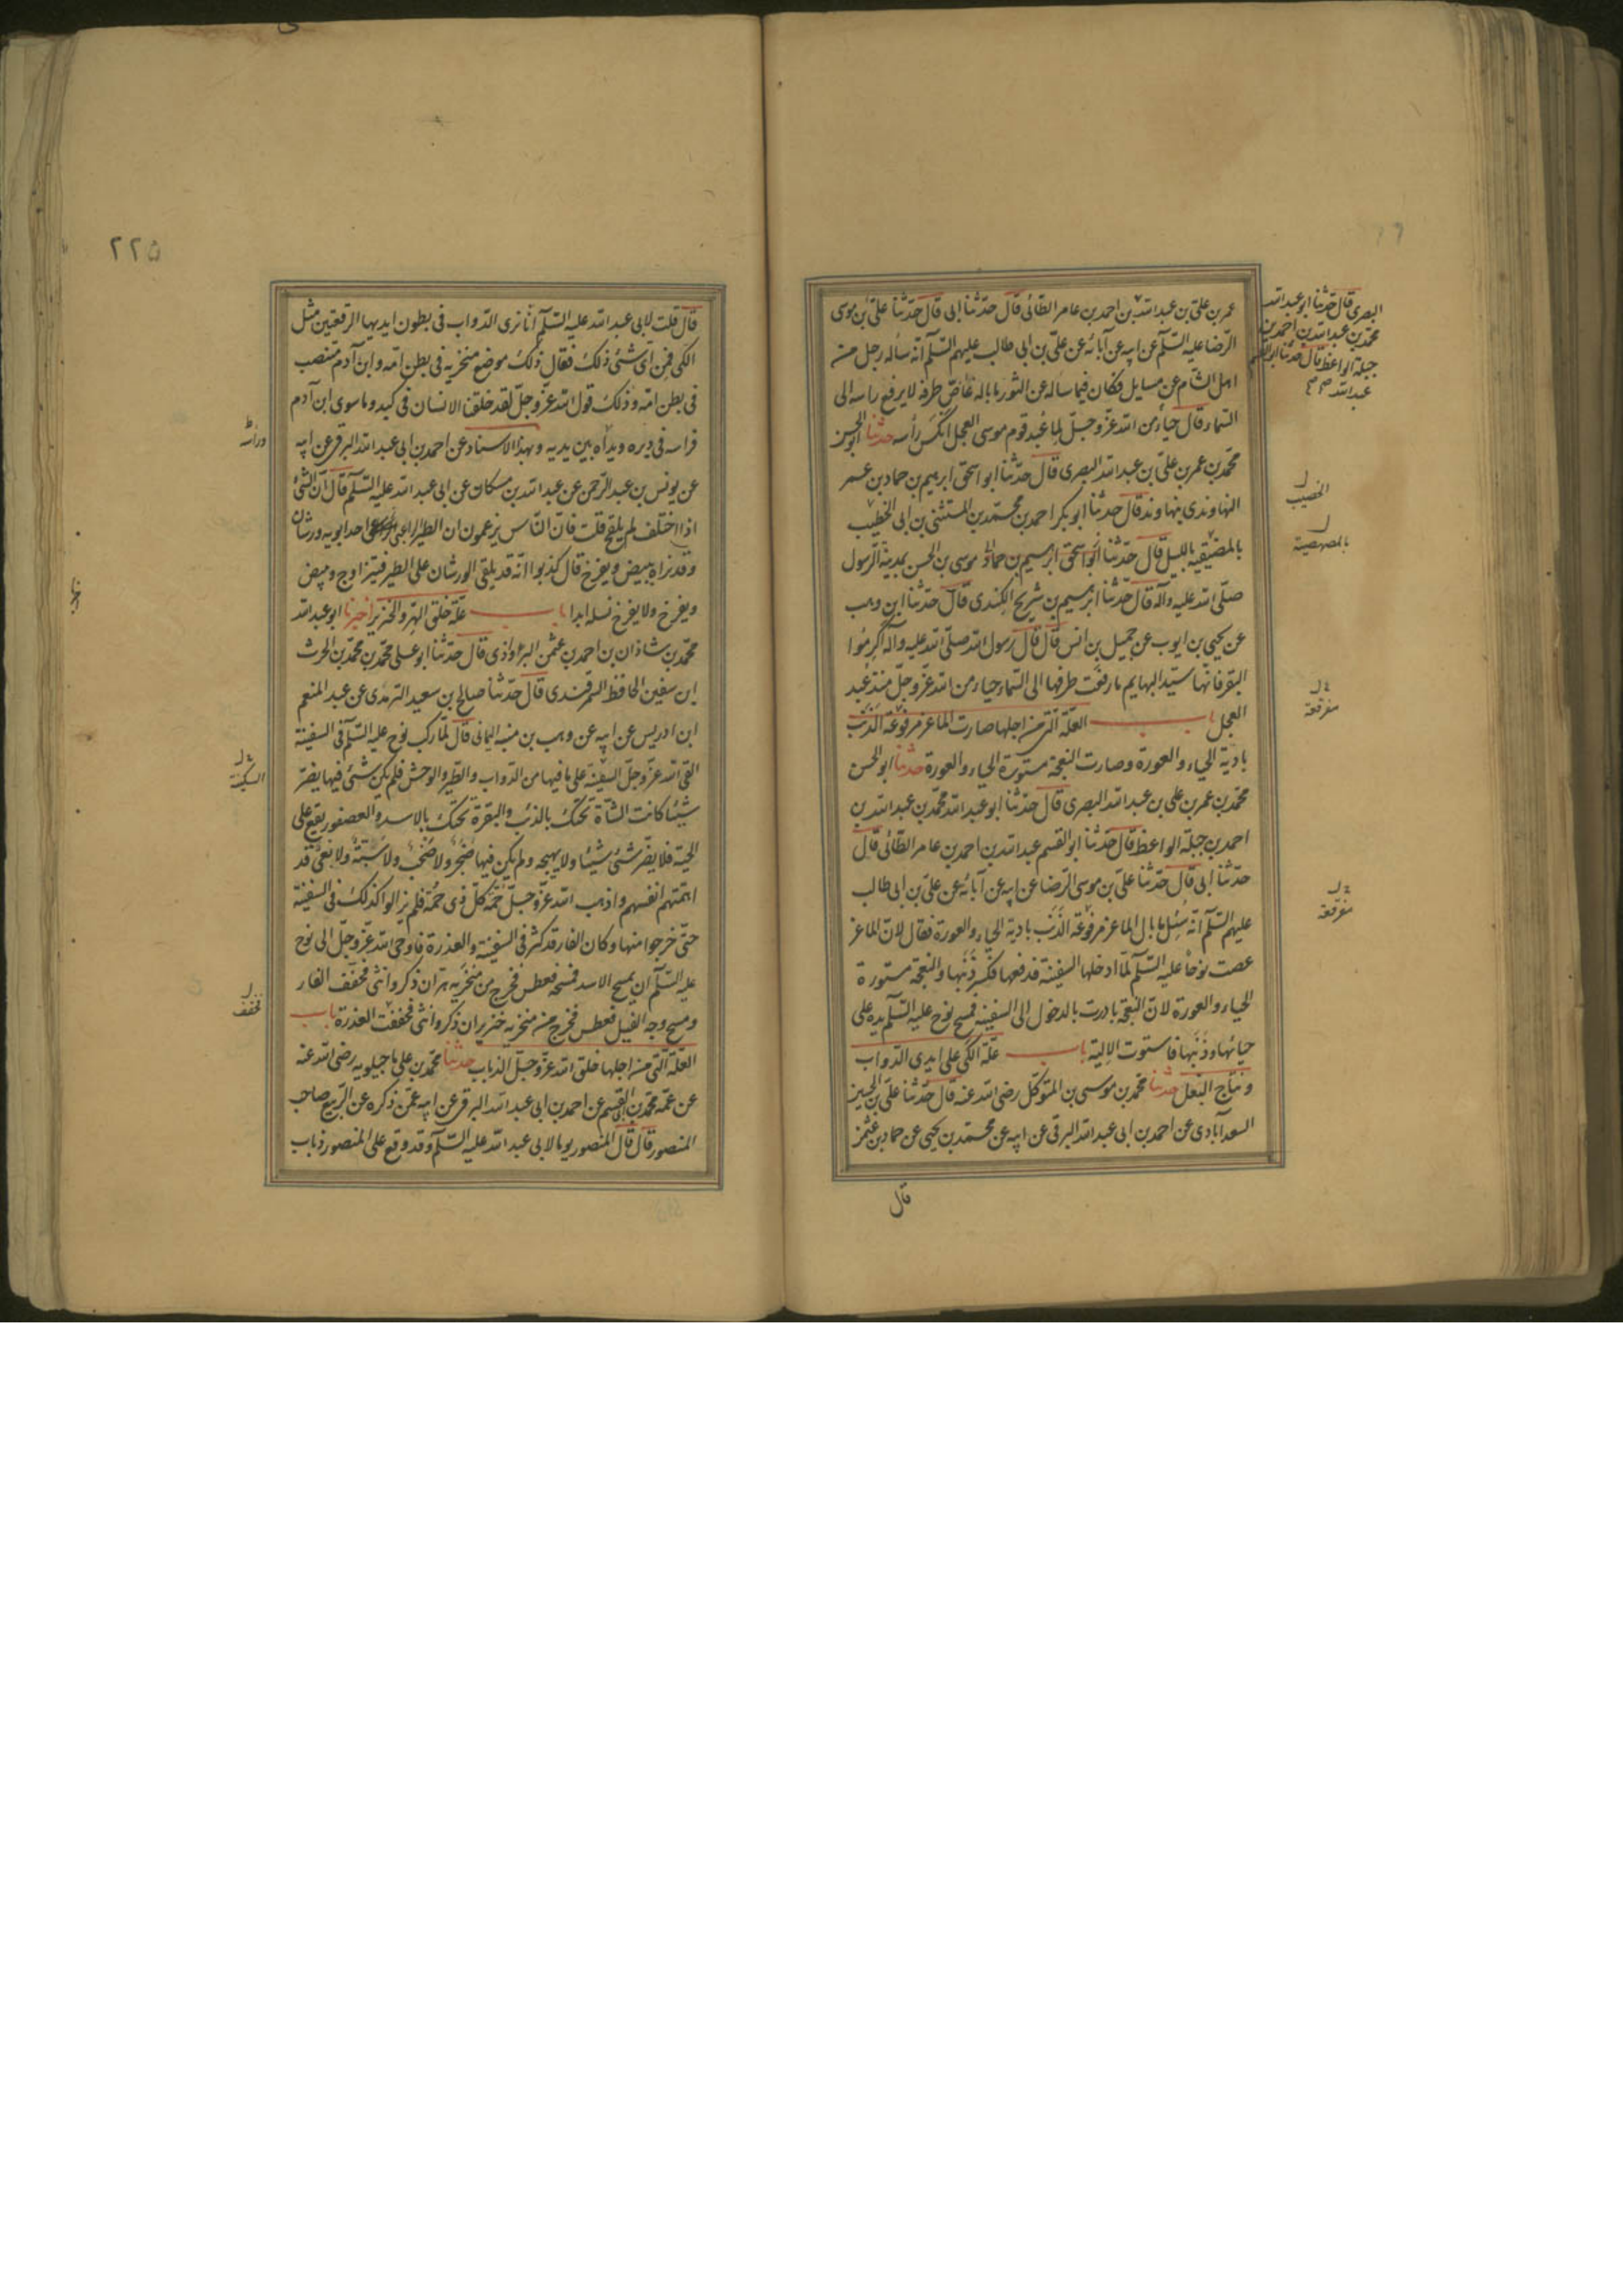 عمر بن علی بن عبد الله بن احمد بن عامر الطائی قال حدثنا ابی قال حدثنا علی بن موسی
الرضا علیه السلم عن ابیه عن آبائه عن علی بن ابی طالب علیهم السلم انه ساله رجل من
اهل الشام عن مسایل فکان فیما ساله عن الثور ما باله غاض طرفه لا یرفع راسه الی
السماء قال حیاء من الله عز وجل لما عبد قوم موسی العجل انکس رأسه حدثنا ابو الحسن
محمد بن عمر بن علی بن عبد الله البصری قال حدثنا ابو اسحق ابرهیم بن حماد بن عمر
النهاوندی بنهاوند قال حدثنا ابو بکر احمد بن محمد بن المستثنی بن ابی الخطیب
بالمضیقیه باللیل قال حدثنا ابو اسحق ابرهیم بن حماد موسی بن الحسن بمدینة الرسول
صلی الله علیه وآله قال حدثنا ابرهیم بن شریح الکندی قال حدثنا ابن وهب
عن یحیی بن ایوب عن جمیل بن انس قال قال رسول الله صلی الله علیه واله اکرموا
البقر فانها سید البهایم ما رفعت طرفها الی السماء حیاء من الله عز وجل منذ عبد
العجل باب العلة التی من اجلها صارت الماعز مرفوعة الذنب
بادیة الحیاء والعورة وصارت النعجة مستورة الحیاء والعورة حدثنا ابو الحسن
محمد بن عمر بن علی بن عبد الله البصری قال حدثنا ابو عبد الله محمد بن عبد الله بن
احمد بن جبلة الواعظ قال حدثنا ابو القسم عبد الله بن احمد بن عامر الطائی قال
حدثنا ابی قال حدثنا علی بن موسی الرضا عن ابیه عن آبائه عن علی بن ابی طالب
علیهم السلم انه سئل ما بال الماعز مرفوعة الذنب بادیة الحیاء والعورة فقال لان الماعز
عصت نوحا علیه السلم لما ادخلها السفینة فدفعها فکسر ذنبها والنعجة مستورة
الحیاء والعورة لان النعجة بادرت بالدخول الی السفینة فمسح نوح علیه السلم یده علی
حیائها وذنبها فاستوت الالیة باب علة الکی علی ایدی الدواب
ونتاج البغل حدثنا محمد بن موسی بن المتوکل رضی الله عنه قال حدثنا علی بن الحسین
السعدآبادی عن احمد بن ابی عبد الله البرقی عن ابیه عن محمد بن یحیی عن حماد بن عثمن
قال
البصری قال حدثنا ابو عبد الله
محمد بن عبد الله بن احمد بن
جبلة الواعظ قال حدثنا ابو القسم
عبد الله
الخصیب
مفرقعة
مفرقعة
٢٢٥
قال قلت لابی عبد الله علیه السلم انا نری الدواب فی بطون ایدیها الرقعتین مثل
الکی فمن ای شئ ذلک فقال ذلک موضع منخریه فی بطن امه وابن آدم منتصب
فی بطن امه وذلک قول الله عز وجل لقد خلقنا الانسان فی کبد وما سوی ابن آدم
فراسه فی دبره ویداه بین یدیه وبهذا الاسناد عن احمد بن ابی عبد الله البرقی عن ابیه
عن یونس بن عبد الرحمن عن عبد الله بن مسکان عن ابی عبد الله علیه السلم قال ان الشئ
اذا اختلف لم یلقح قلت فان الناس یزعمون ان الطیر الراعبی احد ابویه ورشان
وقد نراه یبیض ویفرخ قال کذبوا انه قد یلقی الورشان علی الطیر فیتزاوج ویبیض
ویفرخ ولا یفرخ نسله ابدا باب علة خلق الهر والخنزیر اخبرنا ابو عبد الله
محمد بن شاذان بن احمد بن عثمن البراوذی قال حدثنا ابو علی محمد بن محمد بن الحرث
ابن سفین الحافظ السمرقندی قال حدثنا صالح بن سعید الترمذی عن عبد المنعم
ابن ادریس عن ابیه عن وهب بن منبه الیمانی قال لما رکب نوح علیه السلم فی السفینة
القی الله عز وجل السفینة علی ما فیها من الدواب والطیر والوحش فلم یکن شئ فیها یضر
شیئا کانت الشاة تحتک بالذئب والبقرة تحتک بالاسد والعصفور یقع علی
الحیة فلا یضر شئ شیئا ولا یهیجه ولم یکن فیها ضجر ولا صخب ولا سبة ولا لعن قد
اهمتهم انفسهم واذهب الله عز وجل حمة کل ذی حمة فلم یزالوا کذلک فی السفینة
حتی خرجوا منها وکان الفار قد کثر فی السفینة والعذرة فاوحی الله عز وجل الی نوح
علیه السلم ان یمسح الاسد فمسحه فعطس فخرج من منخریه هران ذکر وانثی فخفف الفار
ومسح وجه الفیل فعطس فخرج من منخریه خنزیران ذکر وانثی فخففت العذرة باب
العلة التی من اجلها خلق الله عز وجل الذباب حدثنا محمد بن علی ماجیلویه رضی الله عنه
عن عمه محمد بن ابی القسم عن احمد بن ابی عبد الله البرقی عن ابیه عمن ذکره عن الربیع صاحب
المنصور قال قال المنصور یوما لابی عبد الله علیه السلم وقد وقع علی المنصور ذباب
السکینة
فخفف